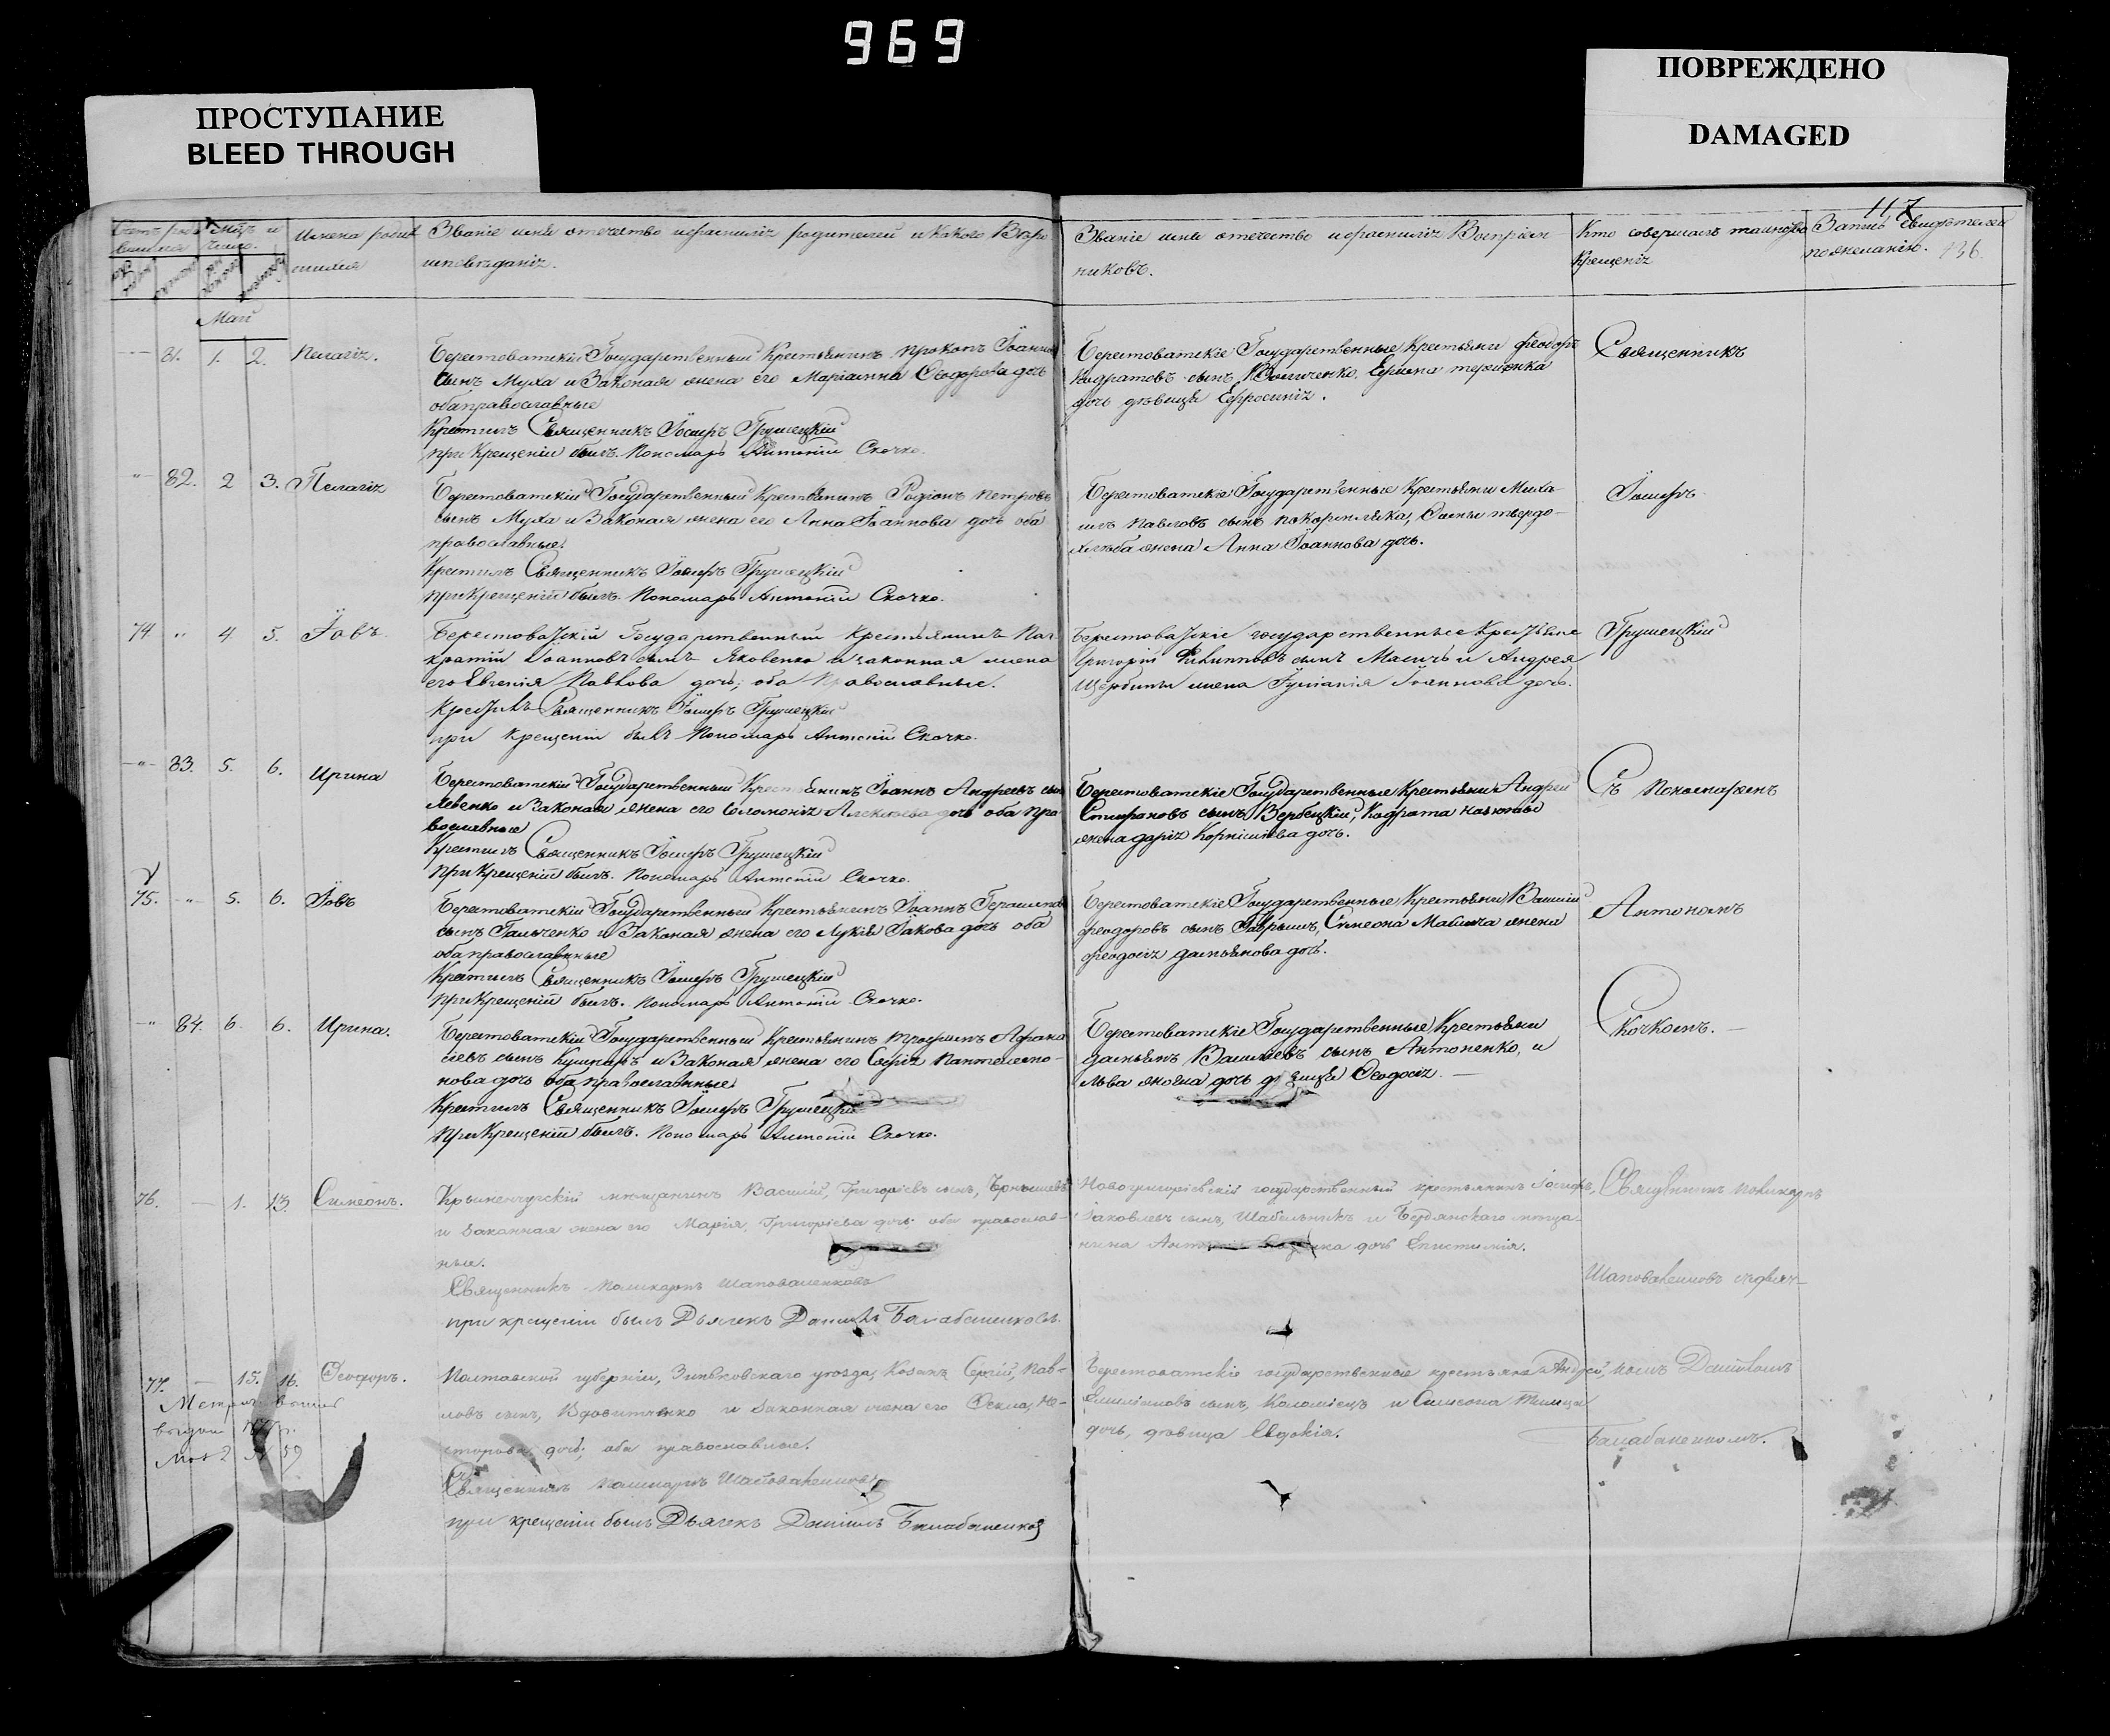 969
ПРОСТУПАНИЕ
BLEED THROUGH
ПОВРЕЖДЕНО
DAMAGED
117
136.
Счетъ родившихся
Мѣсяцъ и число.
Имена родившихся
Званіе имя отечество и фамилія родителей и какого Вѣроисповѣданія.
Званіе имя отечество и фамилія Воспріемниковъ.
Кто совершалъ таинство Крещенія
Запись свидѣтелей по желанію.
Май
81. 1. 2. Пелагія.
Берестоватскій Государственный Крестьянинъ Прокопъ Іоанновъ
сынъ Муха и Законая жена его Маріанна Ѳеодорова дочь
оба православные
Крестилъ Священникъ Іосифъ Грушецкій
при Крещеніи былъ Пономарь Антоній Скочко.
Берестоватскіе Государственные Крестьяни Феодоръ
Кодратовъ сынъ
дочь дѣвица Ефросинія.
Священникъ
" 82. 2 3. Пелагія
Берестоватскій Государственный Крестьянинъ Родіонъ Петровъ
сынъ Муха и Законая жена его Анна Іоаннова дочь оба
православные.
Крестилъ Священникъ Іосифъ Грушецкій
при Крещеніи былъ Пономарь Антоній Скочко.
Берестоватскіе Государственные Крестьяни Миха-
илъ Павловъ сынъ Покормляка, Сами твердо-
хлѣба жена Анна Іоаннова дочь.
Іосифъ
74 " 4 5. Іовъ
Берестоватскій Государственный Крестьянинъ Пан-
кратій Іоанновъ сынъ Яковенко и законная жена
его Евгенія Павлова дочь; оба Православные.
Крестилъ Священникъ Іосифъ Грушецкій
при крещеніи былъ Пономарь Антоній Скочко.
Берестоватскіе государственные Крестьяне
Григорій Филипповъ сынъ Масичъ и Андрея
Щербины жена Іуліанія Іоаннова дочь.
Грушецкій
" 83. 5. 6. Ирина
Берестоватскій Государственный Крестьянинъ Іоаннъ Андреевъ сынъ
Левенко и Законая жена его Соломонія Алексѣева дочь оба пра-
вославные
Крестилъ Священникъ Іосифъ Грушецкій
при Крещеніи былъ. Пономарь Антоній Скочко.
Берестоватскіе Государственные Крестьяни Андрей
Стефановъ сынъ Вербецкій, Кодрата
жена дарія Корніліева дочь.
Съ Пономаремъ
75. " 5. 6. Іовъ
Берестоватскій Государственный Крестьянинъ Іоаннъ Герасимовъ
сынъ Гальченко и Законая жена его Лукія Іакова дочь оба
оба православные
Крестилъ Священникъ Іосифъ Грушецкій
при Крещеніи былъ. Пономарь Антоній Скочко.
Берестоватскіе Государственные Крестьяни Василій
феодоровъ сынъ Гаврышъ, Симеона жена
феодосія дамьянова дочь.
Антоніемъ
" 84. 6. 6. Ирина.
Берестоватскій Государственный Крестьянинъ Трофимъ Афана
сіевъ сынъ Кушнаръ и Законая жена его Софія Пантелеймо-
нова дочь оба православные
Крестилъ Священникъ Іосифъ Грушецкій
при Крещеніи былъ. Пономарь Антоній Скочко.
Берестоватскіе Государственные Крестьяни
дамьянъ Васильевъ сынъ Антоненко, и
дочь дѣвица Ѳеодосія.
Скочкомъ.
76. — 1. 13. Симеонъ.
Крыменчугскій мѣщанинъ Василій, Григорьевъ сынъ, Чернышевъ
и законная жена его Марія, Григорьева дочь оба православ-
ные.
Священникъ Поликарпъ Шаповаленковъ
при крещеніи былъ Дьячекъ Даніилъ Балабаненковъ.
Новогригорьевскій государственный крестьянинъ Іосифъ,
Іаковлевъ сынъ, Шабельникъ и Бердянскаго мѣща-
нина дочь Епистимія.
Священникъ Поликарпъ
Шаповаленковъ съ дьяч-
77. — 15. 16. Ѳеодоръ.
Полтавской губерніи, Зиньковскаго уѣзда, Козакъ Сергій, Пав-
ловъ сынъ, Вдовиченко и законная жена его Ѳекла, Не-
сторова дочь; оба православные.
Священникъ Поликарпъ Шаповаленковъ
при крещеніи былъ Дьячекъ Даніилъ Балабаненковъ
Берестоватскіе государственные крестьяне Андрей,
Емиліановъ сынъ, Коломіецъ и Симеона
дочь, дѣвица Евдокія.
комъ Даніиломъ
Балабаненкомъ.